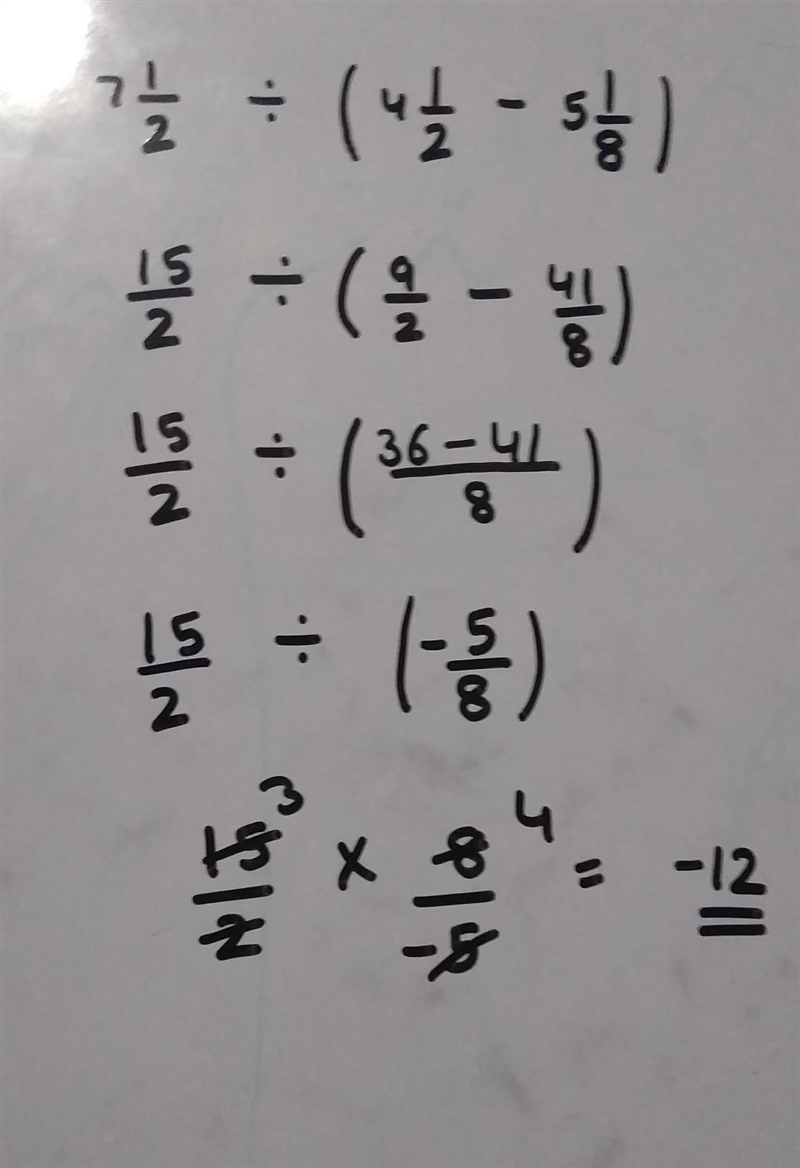 7 1/2 ÷ (4 1/2 - 5 1/8)
15/2 ÷ (9/2 - 41/8)
15/2 ÷ ((36 - 41)/8)
15/2 ÷ (-5/8)
15/2 3 × 8/-5 4 = -12